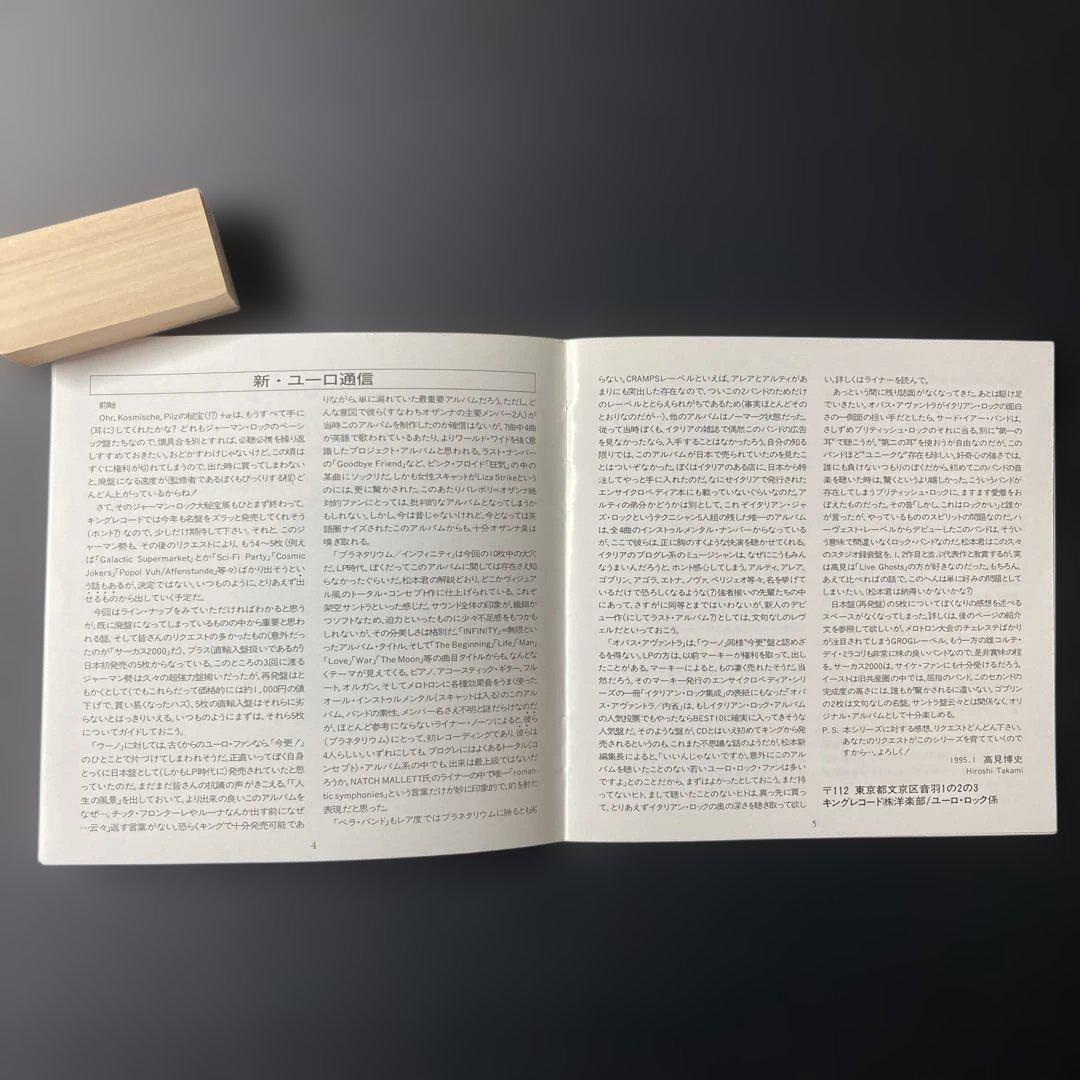 新・ユーロ通信
前略
Ohr, Kosmische, Pilzの秘宝(!?)+αは、もうすべて手に
(耳に)してくれたかな? どれもジャーマン・ロックのベーシ
ック盤たちなので、懐具合を別とすれば、必聴必携を繰り返
しすすめておきたい。おどかすわけじゃないけど、この頃は
すぐに権利が切れてしまうので、出た時に買ってしまわない
と、廃盤になる速度が(監修者であるぼくもびっくりする程)ど
んどん上がっているからね!
さて、そのジャーマン・ロック大秘宝展もひとまず終わって、
キングレコードでは今年も名盤をズラッと発売してくれそう
(ホント?)なので、少しだけ期待して下さい。それと、このジ
ャーマン勢も、その後のリクエストにより、もう4〜5枚(例え
ば「Galactic Supermarket」とか「Sci-Fi Party」「Cosmic
Jokers」「Popol Vuh/Affenstunde」等々)ばかり出そうとい
う話もあるが、決定ではない。いつものように、とりあえず出
せるものから出していく予定だ。
今回はライン・ナップをみていただければわかると思う
が、既に廃盤になってしまっているものの中から重要と思わ
れる盤、そして皆さんのリクエストの多かったもの(意外だっ
たのが「サーカス2000」だ)、プラス(直輸入盤扱いであるが)
日本初発売の5枚からなっている。このところの3回に渡る
ジャーマン勢は久々の超強力盤揃いだったが、再発盤はと
もかくとして(でもこれらだって価格的には約1,000円の値
下げで、買い易くなったハズ)、5枚の直輸入盤はそれらに劣
らないとはっきりいえる。いつものようにまずは、それら5枚
についてガイドしておこう。
「ウーノ」に対しては、古くからのユーロ・ファンなら、「今更!」
のひとことで片づけてしまわれそうだ。正直いってぼく自身
とっくに日本盤として(しかもLP時代に)発売されていたと思
っていたのだ。まだまだ皆さんの抗議の声がきこえる。「「人
生の風景」を出しておいて、より出来の良いこのアルバムを
なぜ…。チック・フロンターレやルーナなんか出す前になぜ
…云々」返す言葉がない。恐らくキングで十分発売可能であ
りながら、単に漏れていた最重要アルバムだろう。ただし、ど
んな意図で彼ら(すなわちオザンナの主要メンバー2人)が
当時このアルバムを制作したのか確信はないが、7曲中4曲
が英語で歌われているあたり、よりワールド・ワイドを強く意
識したプロジェクト・アルバムと思われる。ラスト・ナンバー
の「Goodbye Friend」など、ピンク・フロイド「狂気」の中の
某曲にソックリだ。しかも女性スキャットがLiza Strikeという
のには、更に驚かされた。このあたりバレポリ=オザンナ絶
対的ファンにとっては、批判的なアルバムとなってしまうか
もしれない。しかし、今は昔じゃないけれど、今となっては英
語圏ナイズされたこのアルバムからも、十分オザンナ臭は
嗅ぎ取れる。
「プラネタリウム/インフィニティ」は今回の10枚中の大穴
だ。LP時代、ぼくだってこのアルバムに関しては存在さえ知
らなかったぐらいだ。松本君の解説どおり、どこかヴィジュア
ル風のトータル・コンセプト作に仕上げられている、これぞ
架空サントラといった感じだ。サウンド全体の印象が、繊細か
つソフトなため、迫力といったものに少々不足感をもつかも
しれないが、その分美しさは格別だ。「INFINITY」=無限とい
ったアルバム・タイトル、そして「The Beginning」「Life」「Man」
「Love」「War」「The Moon」等の曲目タイトルからも、なんとな
くテーマが見えてくる。ピアノ、アコースティック・ギター、フル
ート、オルガン、そしてメロトロンに各種効果音をうまく使った
オール・インストゥルメンタル(スキャットは入る)のこのアル
バム、バンドの素性、メンバー名さえ不明と謎だらけなのだ
が、ほとんど参考にならないライナー・ノーツによると、彼ら
(プラネタリウム)にとって、初レコーディングであり、彼らは
4人らしい。いずれにしても、プログレにはよくあるトータル(コ
ンセプト)・アルバム系の中でも、出来は最上級ではないだ
ろうか。NATCH MALLETT氏のライナーの中で唯一「roman-
tic symphonies」という言葉だけが妙に印象的で、的を射た
表現だと思った。
「ベラ・バンド」もレア度ではプラネタリウムに勝るとも劣
4
らない。CRAMPSレーベルといえば、アレアとアルティがあ
まりにも突出した存在なので、ついこの2バンドのためだけ
のレーベルととらえられがちであるため(事実ほとんどその
とおりなのだが…)、他のアルバムはノーマーク状態だった。
従って当時ぼくも、イタリアの雑誌で偶然このバンドの広告
を見なかったなら、入手することはなかったろう。自分の知る
限りでは、このアルバムが日本で売られていたのを見たこ
とはついぞなかった。ぼくはイタリアのある店に、日本から特
注してやっと手に入れたのだ。なにせイタリアで発行された
エンサイクロペディア本にも載っていないぐらいなのだ。ア
ルティの弟分かどうかは別として、これぞイタリアン・ジャ
ズ・ロックというテクニシャン5人組の残した唯一のアルバム
は、全4曲のインストゥルメンタル・ナンバーからなっている
が、ここで彼らは、正に胸のすくような快演を聴かせてくれる。
イタリアのプログレ系のミュージシャンは、なぜにこうもみん
なうまいんだろうと、ホント感心してしまう。アルティ、アレア、
ゴブリン、アゴラ、エトナ、ノヴァ、ペリジェオ等々、名を挙げて
いるだけで恐ろしくなるような(?)強者揃いの先輩たちの中
にあって、さすがに同等とまではいわないが、新人のデビ
ュー作(にしてラスト・アルバム?)としては、文句なしのレヴ
ェルだといっておこう。
「オパス・アヴァントラ」は、「ウーノ」同様“今更”盤と認めざ
るを得ない。LPの方は、以前マーキーが権利を取って、出し
たことがある。マーキーによると、もの凄く売れたそうだ。当
然だろう。そのマーキー発行のエンサイクロペディア・シリ
ーズの一冊「イタリアン・ロック集成」の表紙にもなった「オパ
ス・アヴァントラ/内省」は、もしイタリアン・ロック・アルバム
の人気投票でもやったならBEST10に確実に入ってきそうな
人気盤だ。そのような盤が、CDとはいえ初めてキングから発
売されるというのも、これまた不思議な話のようだが、松本新
編集長によると、「いいんじゃないですか。意外にこのアル
バムを聴いたことのない若いユーロ・ロック・ファンは多い
ですよ」とのことだから、まずはよかったとしておこう。まだ持
ってないヒト、まして聴いたことのないヒトは、真っ先に買っ
て、とりあえずイタリアン・ロックの奥の深さを聴き取って欲し
い。詳しくはライナーを読んで。
あっという間に残り誌面がなくなってきた。あとは駆け足
でいきたい。オパス・アヴァントラがイタリアン・ロックの面白
さの一側面の担い手だとしたら、サード・イアー・バンドは、
さしずめブリティッシュ・ロックのそれに当る。別に“第一の
耳”で聴こうが、“第二の耳”を使おうが自由なのだが、この
バンドほど“ユニークな”存在も珍しい。好奇心の強さでは、
誰にも負けないつもりのぼくだから、初めてこのバンドの音
楽を聴いた時は、驚くというより嬉しかった。こういうバンドが
存在してしまうブリティッシュ・ロックに、ますます愛着をお
ぼえたものだった。その昔「しかし、これはロックかい」と誰か
が言ったが、やっているもののスピリットの問題なのだ。ハ
ーヴェスト・レーベルからデビューしたこのバンドは、そうい
う意味で間違いなくロック・バンドなのだ。松本君はこの久々
のスタジオ録音盤を、1、2作目と並ぶ代表作と激賞するが、実
は高見は「Live Ghosts」の方が好きなのだった。もちろん、
あえて比べればの話で、このへんは単に好みの問題として
しまいたい。(松本君は納得いかないかな?)
日本盤(再発盤)の5枚についてぼくなりの感想を述べる
スペースがなくなってしまった。詳しくは、後のページの紹介
文を参照して欲しいが、メロトロン大会のチェレステばかり
が注目されてしまうGROGレーベル、もう一方の雄コルテ・
デイ・ミラコリも非常に味の良いバンドなので、是非賞味の程
を。サーカス2000は、サイケ・ファンにも十分受けるだろう。
イーストは旧共産圏の中では、屈指のバンド。このセカンドの
完成度の高さには、誰もが驚かされるに違いない。ゴブリン
の2枚は文句なしの名盤。サントラ盤云々とは関係なく、オリ
ジナル・アルバムとして十分楽しめる。
P.S. 本シリーズに対する感想、リクエストどんどん下さい。
あなたのリクエストがこのシリーズを育てていくので
すから…。よろしく!
1995.1 高見博史
Hiroshi Takami
〒112 東京都文京区音羽1の2の3
キングレコード㈱洋楽部/ユーロ・ロック係
5